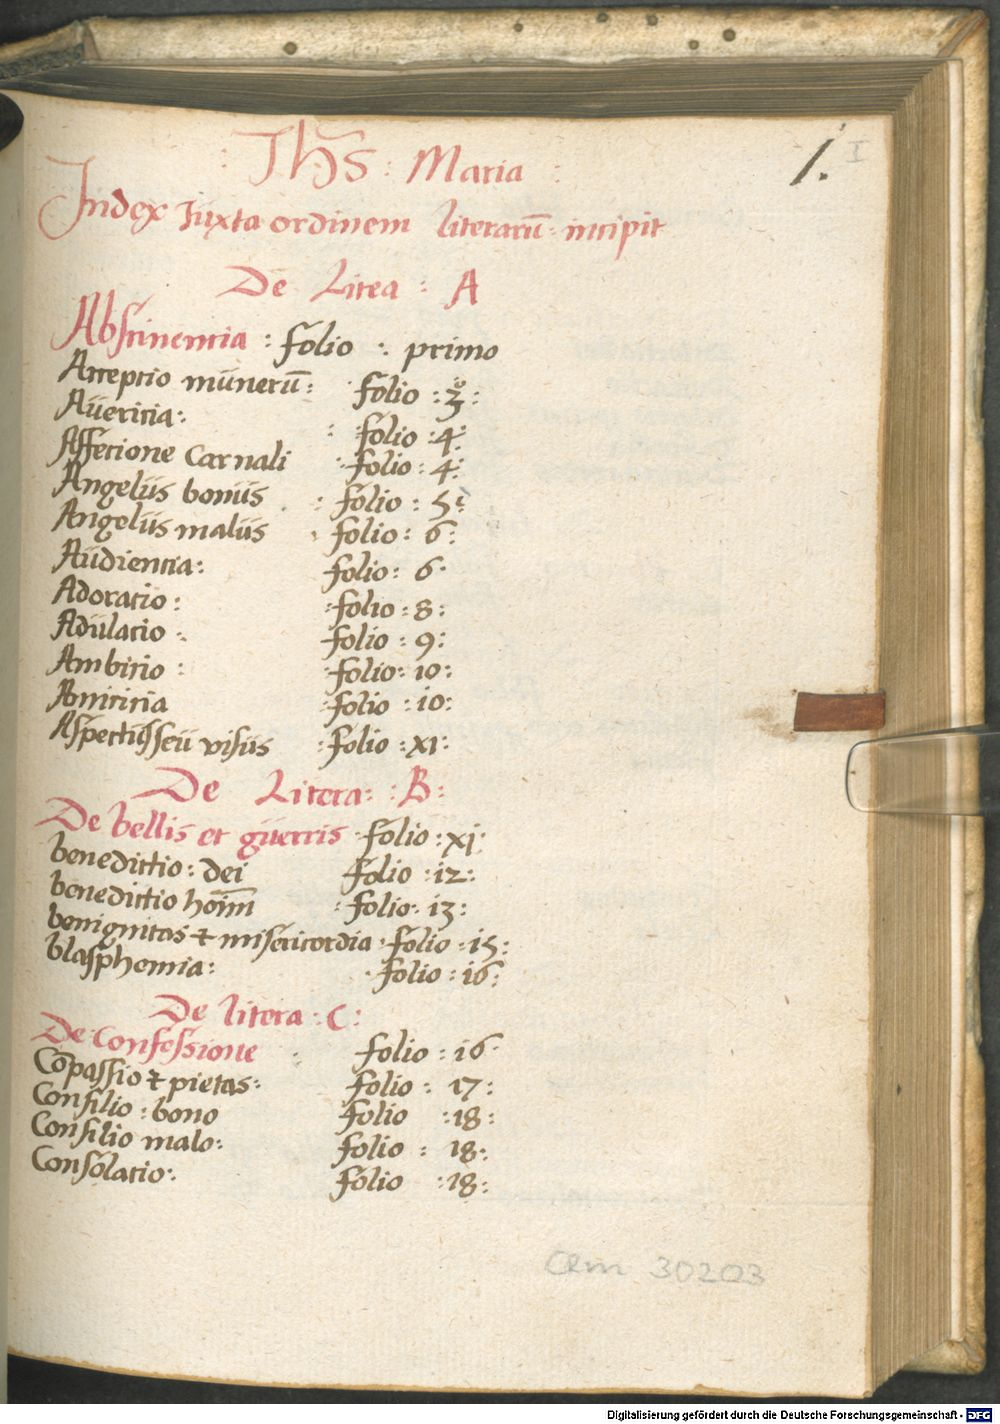 : Jhs̄ : Maria :
1. I
Index Iuxta ordinem literarū incipit
De Litea : A
Abstinentia : folio : primo
Acceptio munerū : folio : 3º :
Auericia : : folio : 4 :
Affectione Carnali : folio : 4 :
Angelus bonus : folio : 5 :
Angelus malus : folio : 6 :
Audientia : folio : 6 ·
Adoratio : : folio : 8 :
Adulatio : folio : 9 :
Ambitio : : folio : 10 :
Amicicia : folio : io :
Aspectus seu visus : folio : xi :
De Litera : : B :
De bellis et guerris · folio : xj :
benedictio : dei folio : i2 :
benedictio hoīm : folio : i3 :
benignitas & misericordia : folio : i5 :
blasphemia : : folio : i6 :
De litera : C :
De Confessione : folio : i6 ·
Cōpassio & pietas : folio : 17 :
Consilio : bono folio : 18 :
Consilio malo : folio : 18 :
Consolatio : folio : 18 :
Clm 30203
Digitalisierung gefördert durch die Deutsche Forschungsgemeinschaft - DFG